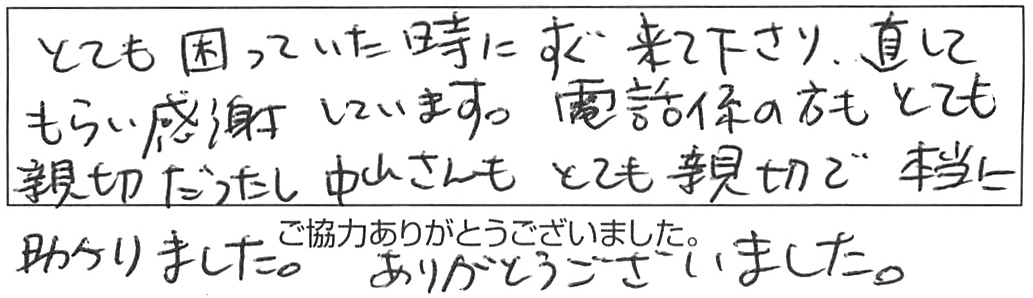 とても困っていた時にすぐ来て下さり、直して
もらい感謝しています。電話係の方もとても
親切だったし中山さんもとても親切で本当に
ご協力ありがとうございました。
助かりました。ありがとうございました。